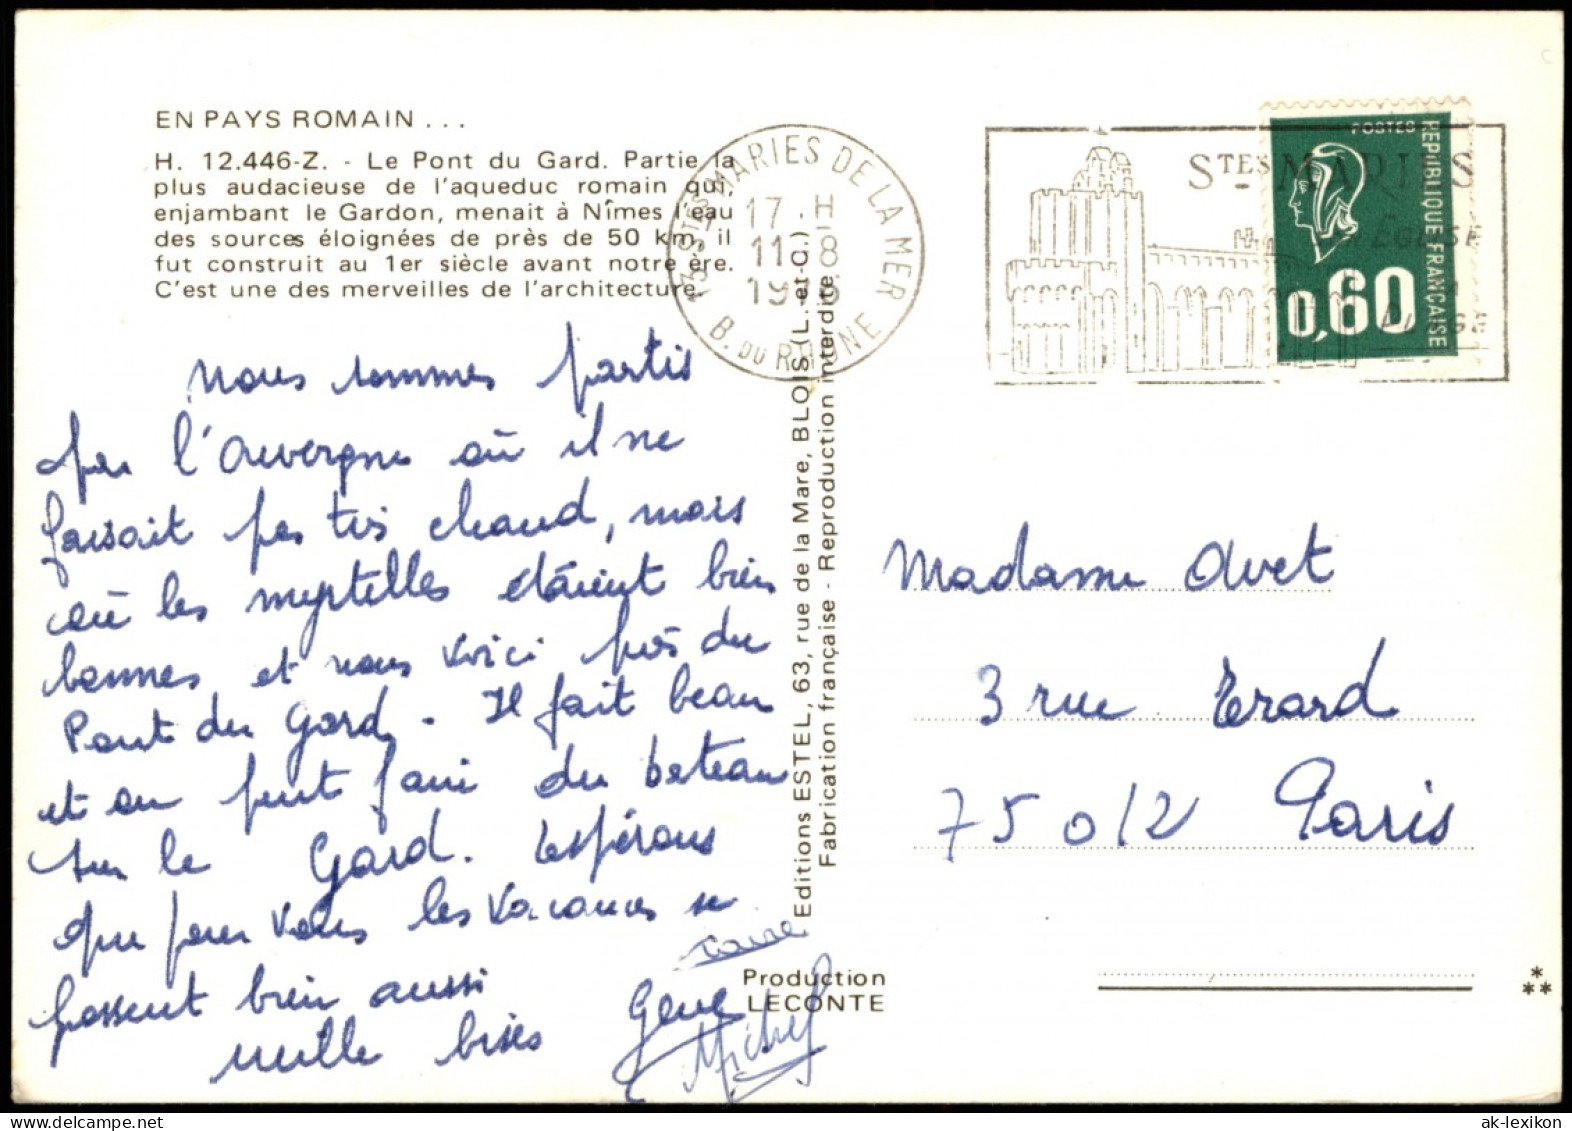 EN PAYS ROMAIN . . .
H. 12.446-Z. - Le Pont du Gard. Partie la
plus audacieuse de l'aqueduc romain qui,
enjambant le Gardon, menait à Nîmes l'eau
des sources éloignées de près de 50 km, il
fut construit au 1er siècle avant notre ère.
C'est une des merveilles de l'architecture.
13 - STES MARIES DE LA MER
17 H
11 - 8
B. DU RHONE
STES MARIES
ÉGLISE
POSTES
REPUBLIQUE FRANÇAISE
0,60
nous sommes partis
par l'Auvergne où il ne
faisait pas très chaud, mais
où les myrtelles étaient bien
bonnes et nous voici près du
Pont du Gard. Il fait beau
et on peut faire du bateau
sur le Gard. Espérons
que pour vous les vacances se
passent bien aussi
mille bises Gene
Michel
Editions ESTEL, 63, rue de la Mare, BLOIS (L.-et-C.)
Fabrication française - Reproduction interdite
Production
LECONTE
Madame Avet
3 rue Erard
75012 Paris
*
**
ak-lexikon.com